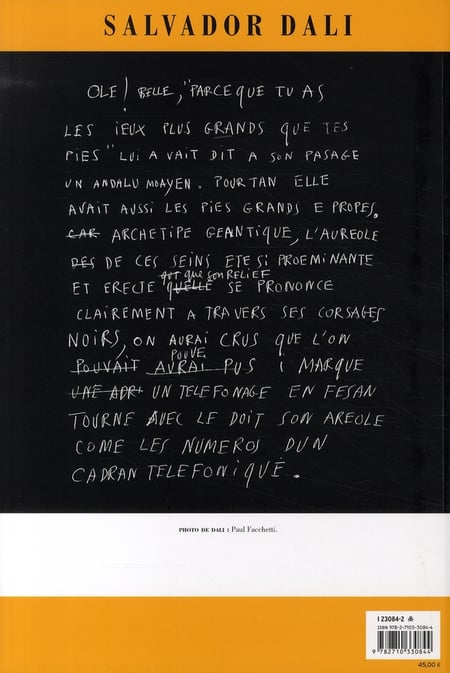 SALVADOR DALI
OLE! BELLE, "PARCE QUE TU AS
LES IEUX PLUS GRANDS QUE TES
PIES" LUI A VAIT DIT A SON PASAGE
UN ANDALU MOAYEN. POUR TAN ELLE
AVAIT AUSSI LES PIES GRANDS E PROPES.
CAR ARCHETIPE GEANTIQUE, L'AUREOLE
DES DE CES SEINS ETE SI PROEMINANTE
QUE SON RELIEF
ET ERECTE QUELLE SE PRONONCE
CLAIREMENT A TRAVERS SES CORSAGES
NOIRS, ON AURAI CRUS QUE L'ON
POUVE
POUVAIT AURAI PUS I MARQUE
UNE ADRI UN TELEFONAGE EN FESAN
TOURNE AVEC LE DOIT SON AREOLE
COME LES NUMEROS DUN
CADRAN TELEFONIQUE.
PHOTO DE DALI : Paul Facchetti.
I 23084-2
ISBN 978-2-7103-3084-4
9 782710 330844
45,00 €